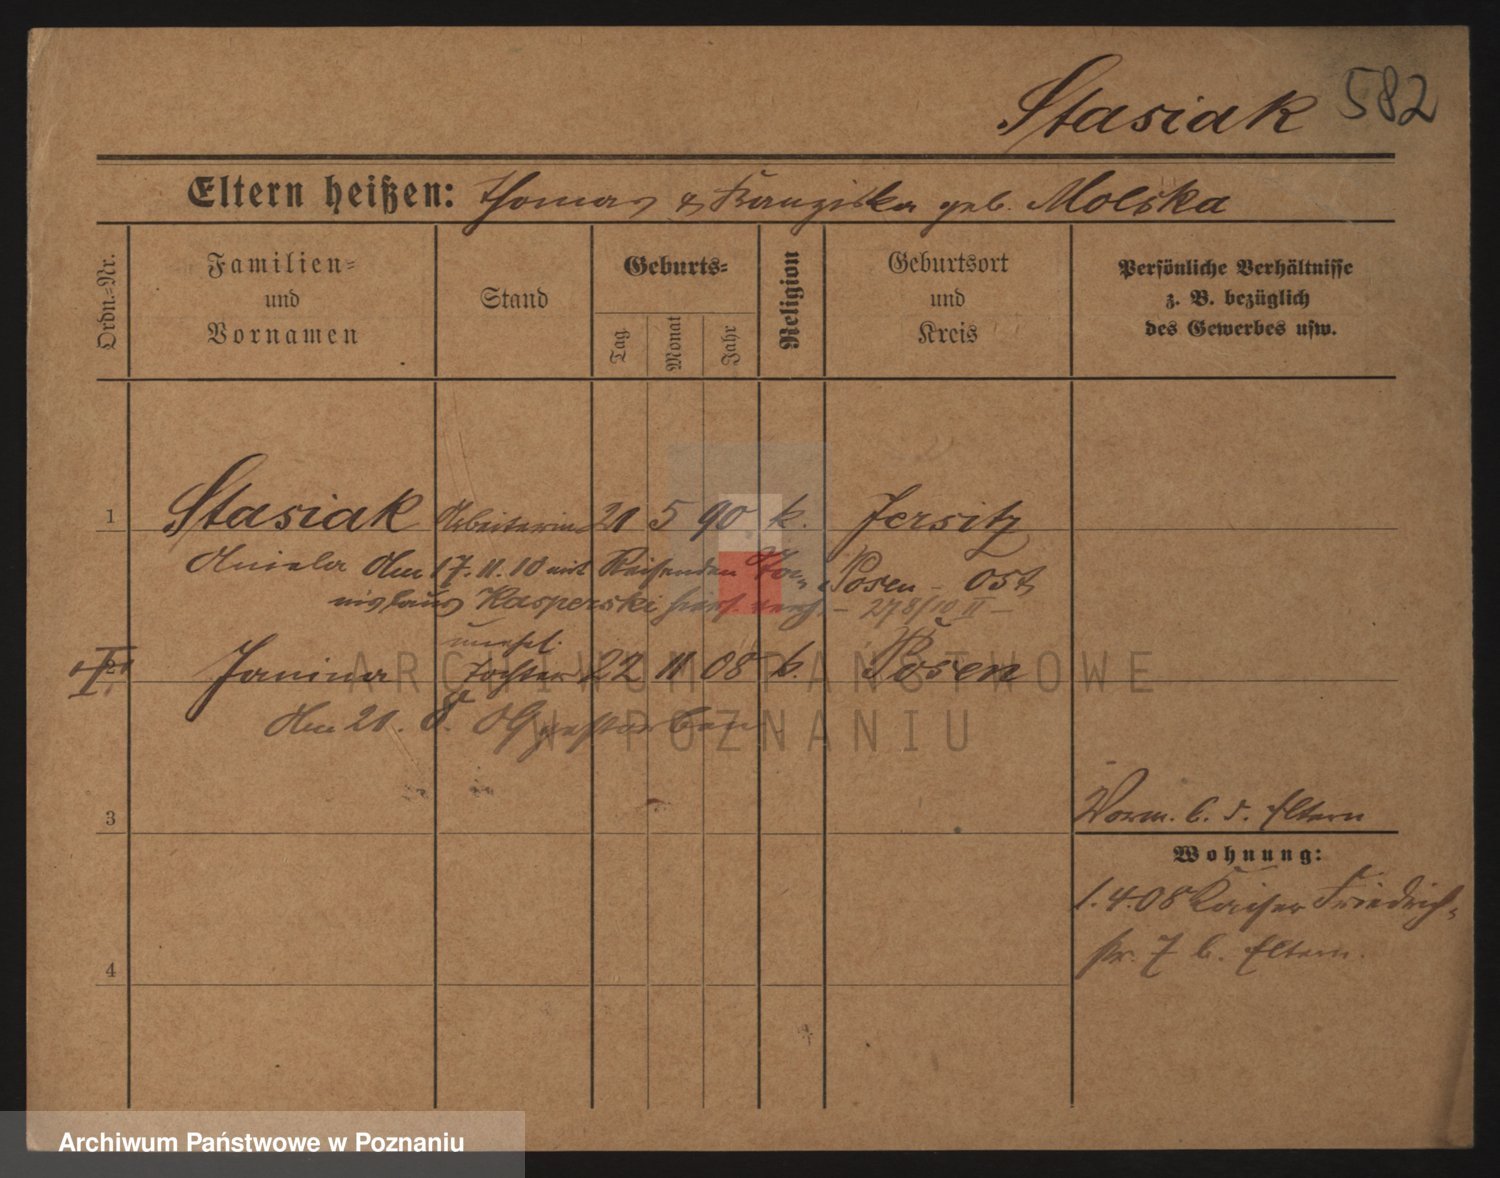 Stasiak 582
Eltern heißen: Thomas & Franziska geb. Molska
Ordn.-Nr.
Familien-
und
Vornamen
Stand
Geburts-
Tag
Monat
Jahr
Religion
Geburtsort
und
Kreis
Persönliche Verhältnisse
z. B. bezüglich
des Gewerbes usw.
1 Stasiak Arbeiterin 21 5 90 k. Jersitz
Aniela Am 17.11.10 mit Reisenden Posen - Ost
nislaus Kasperski hier - 278/10 II -
unehl.
2 Janina Tochter 22 11 08 k. Posen
Am 21. 8. 09 gestorben
3
Worm. b. d. Eltern
Wohnung:
1.4.08 Kaiser Friedrich-
str. 7 b. Eltern.
4
ARCHIWUM PAŃSTWOWE
W POZNANIU
Archiwum Państwowe w Poznaniu